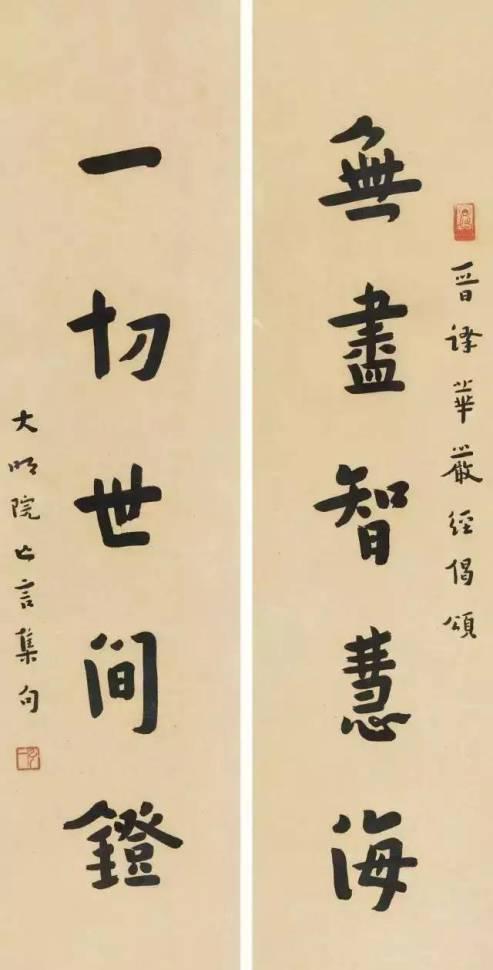 晉譯華嚴經偈頌
無盡智慧海
一切世间鐙
大明院亡言集句